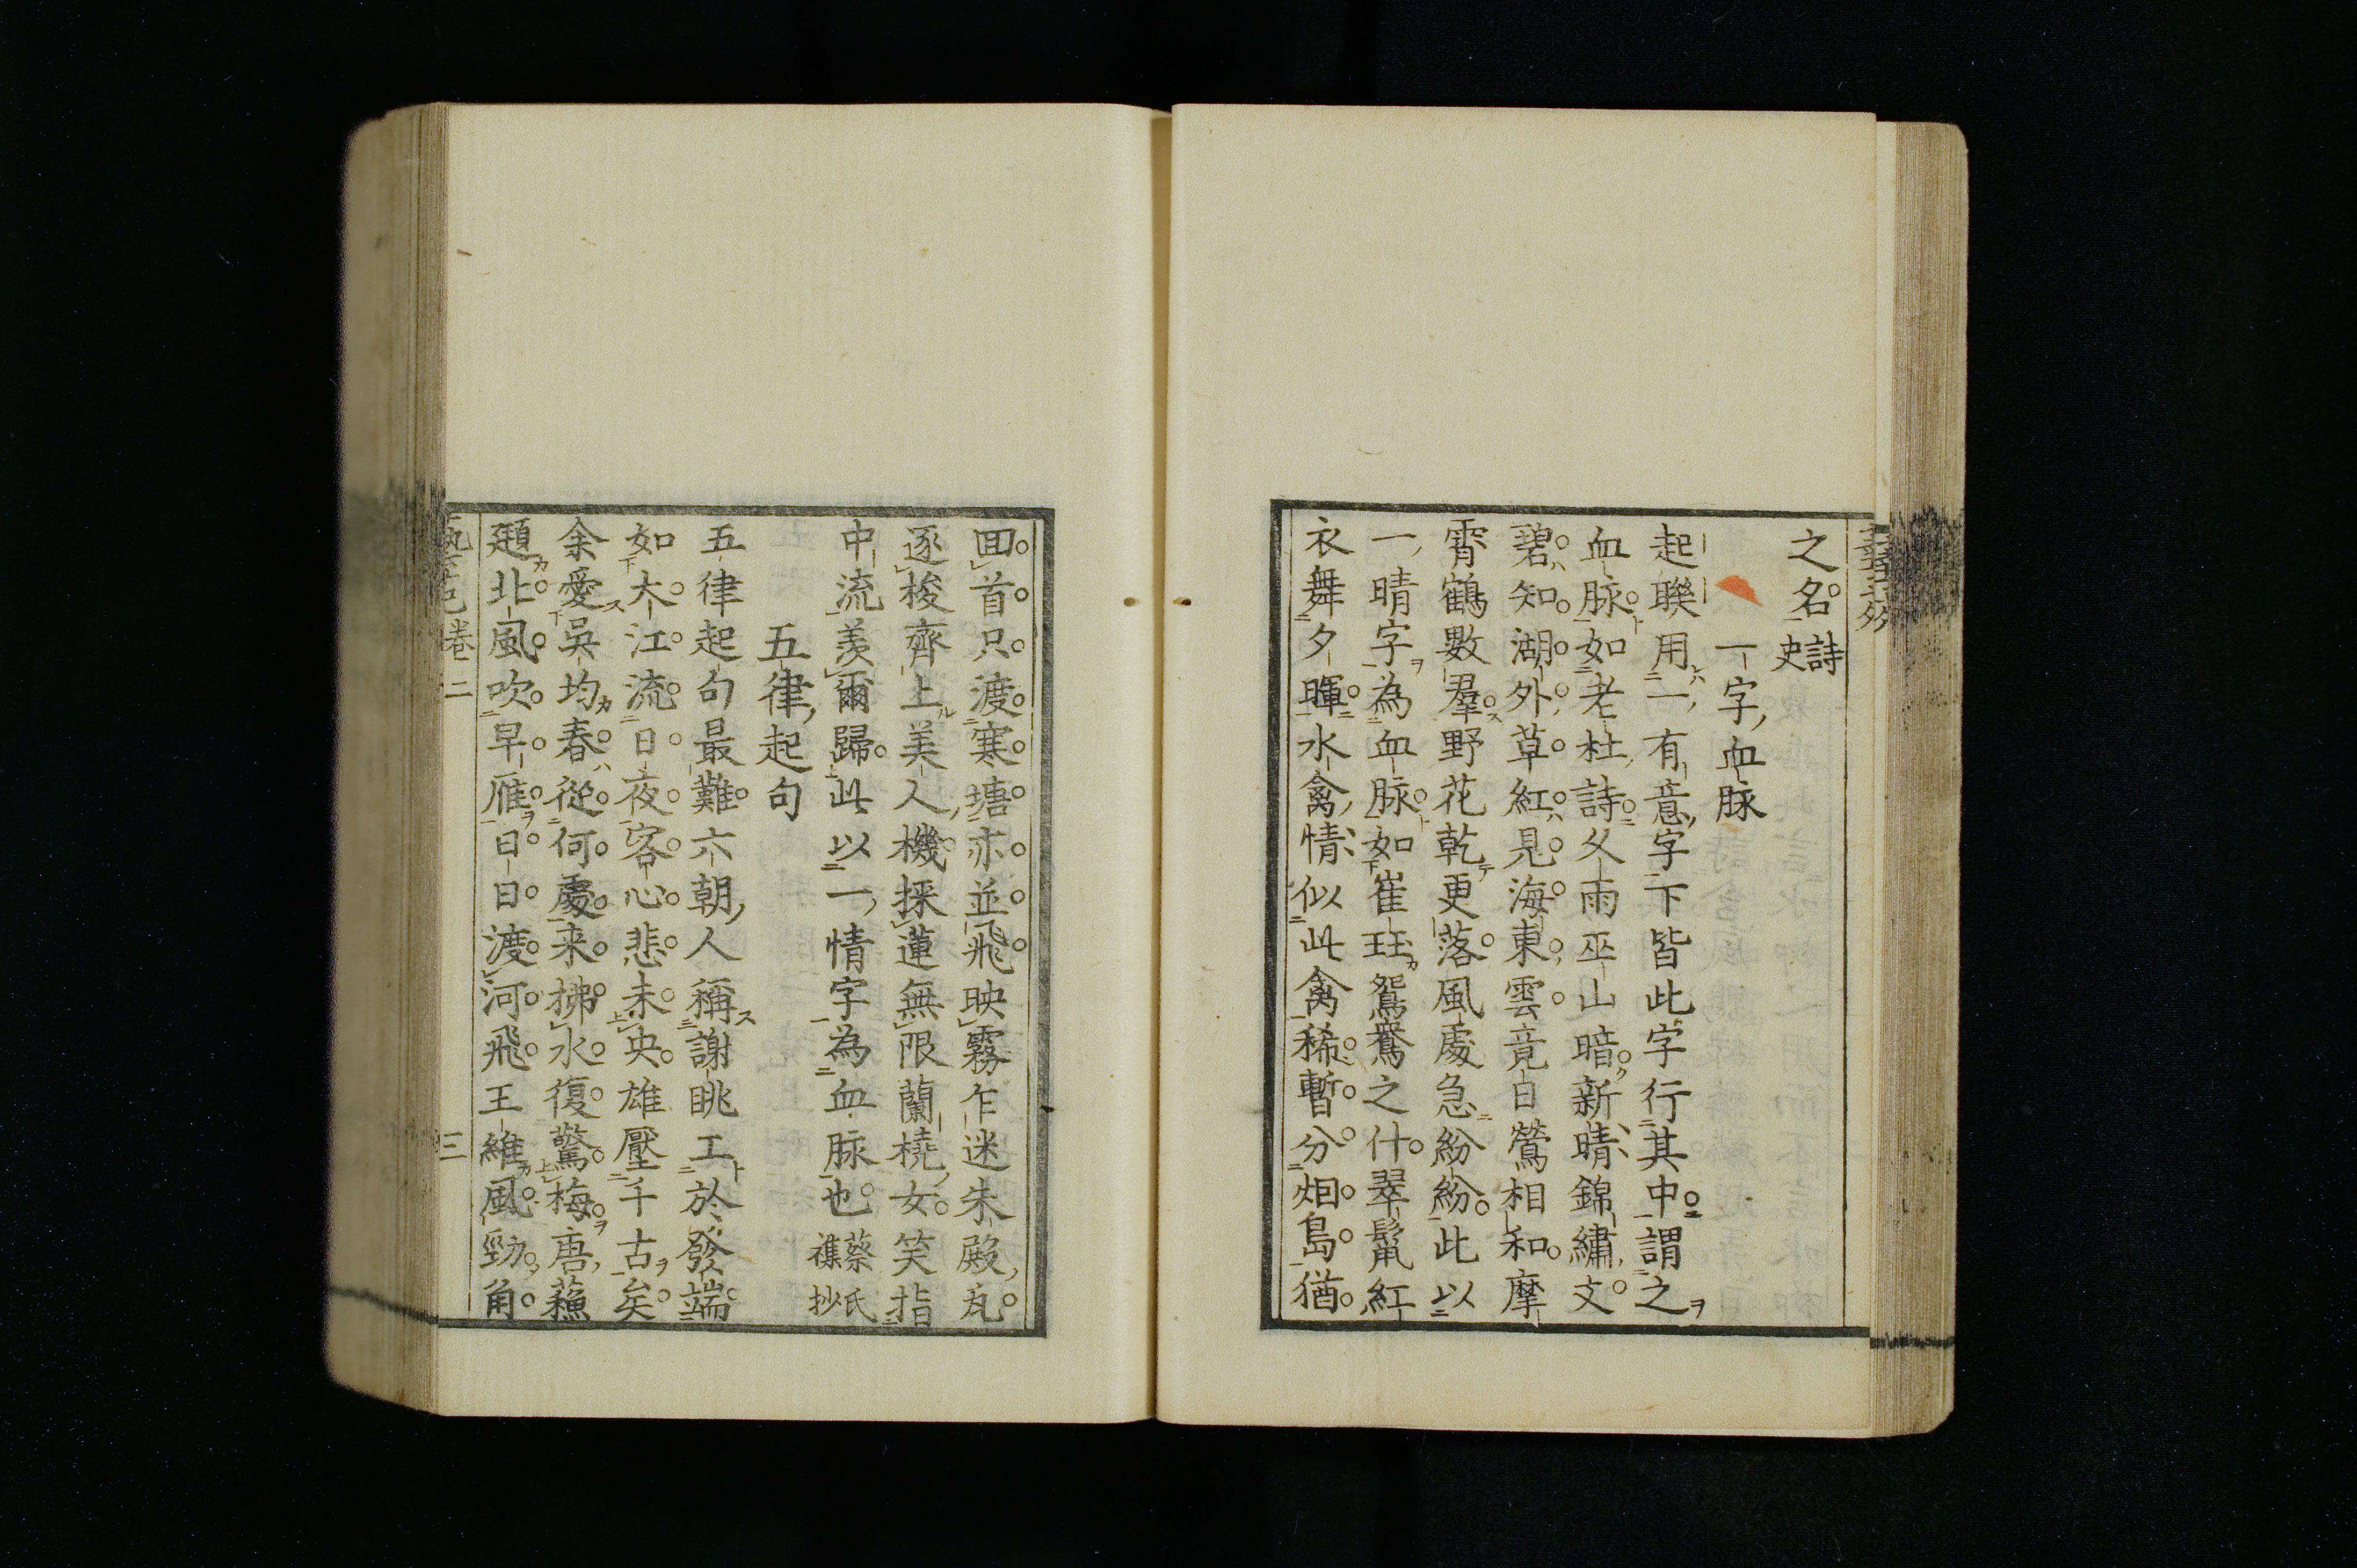 之名詩史
一字血脉
起聯用一有意字下皆此字行其中謂之
血脉如老杜詩久雨巫山暗新晴錦繡文
碧知湖外草紅見海東雲竟日鶯相和摩
霄鶴數羣野花乾更落風處急紛紛此以
一晴字為血脉如崔珏鴛鴦之什翠鬣紅
衣舞夕暉水禽情似此禽稀暫分烟島猶
回首只渡寒塘亦並飛映霧乍迷朱殿瓦
逐梭齊上美人機採蓮無限蘭橈女笑指
中流羨爾歸此以一情字為血脉也蔡氏襍抄
五律起句
五律起句最難六朝人稱謝眺工於發端
如大江流日夜客心悲未央雄壓千古矣
余愛吳均春從何處来拂水復驚梅唐蘓
頲北風吹早雁日日渡河飛王維風勁角
卷二
三